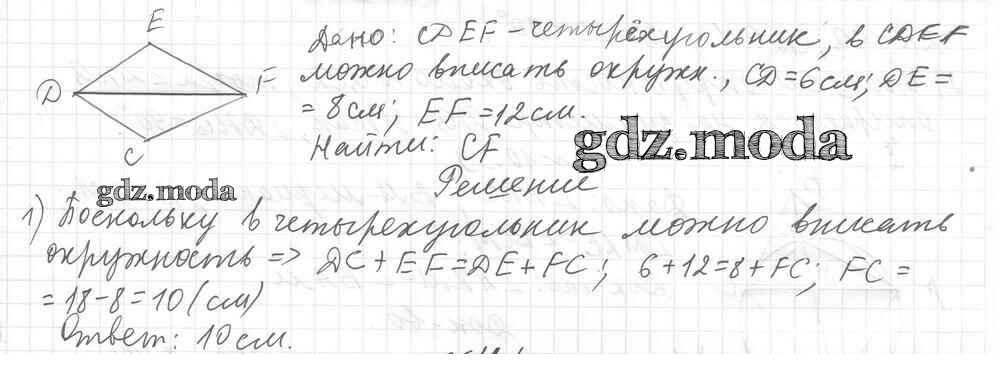 E
D
F
C
Дано: CDEF - четырёхугольник, в CDEF
можно вписать окружн., CD=6см; DE=
= 8см; EF=12см.
Найти: CF
gdz.moda
Решение
gdz.moda
1) Поскольку в четырехугольник можно вписать
окружность => DC+EF=DE+FC; 6+12=8+FC; FC=
= 18-8=10(см)
Ответ: 10см.